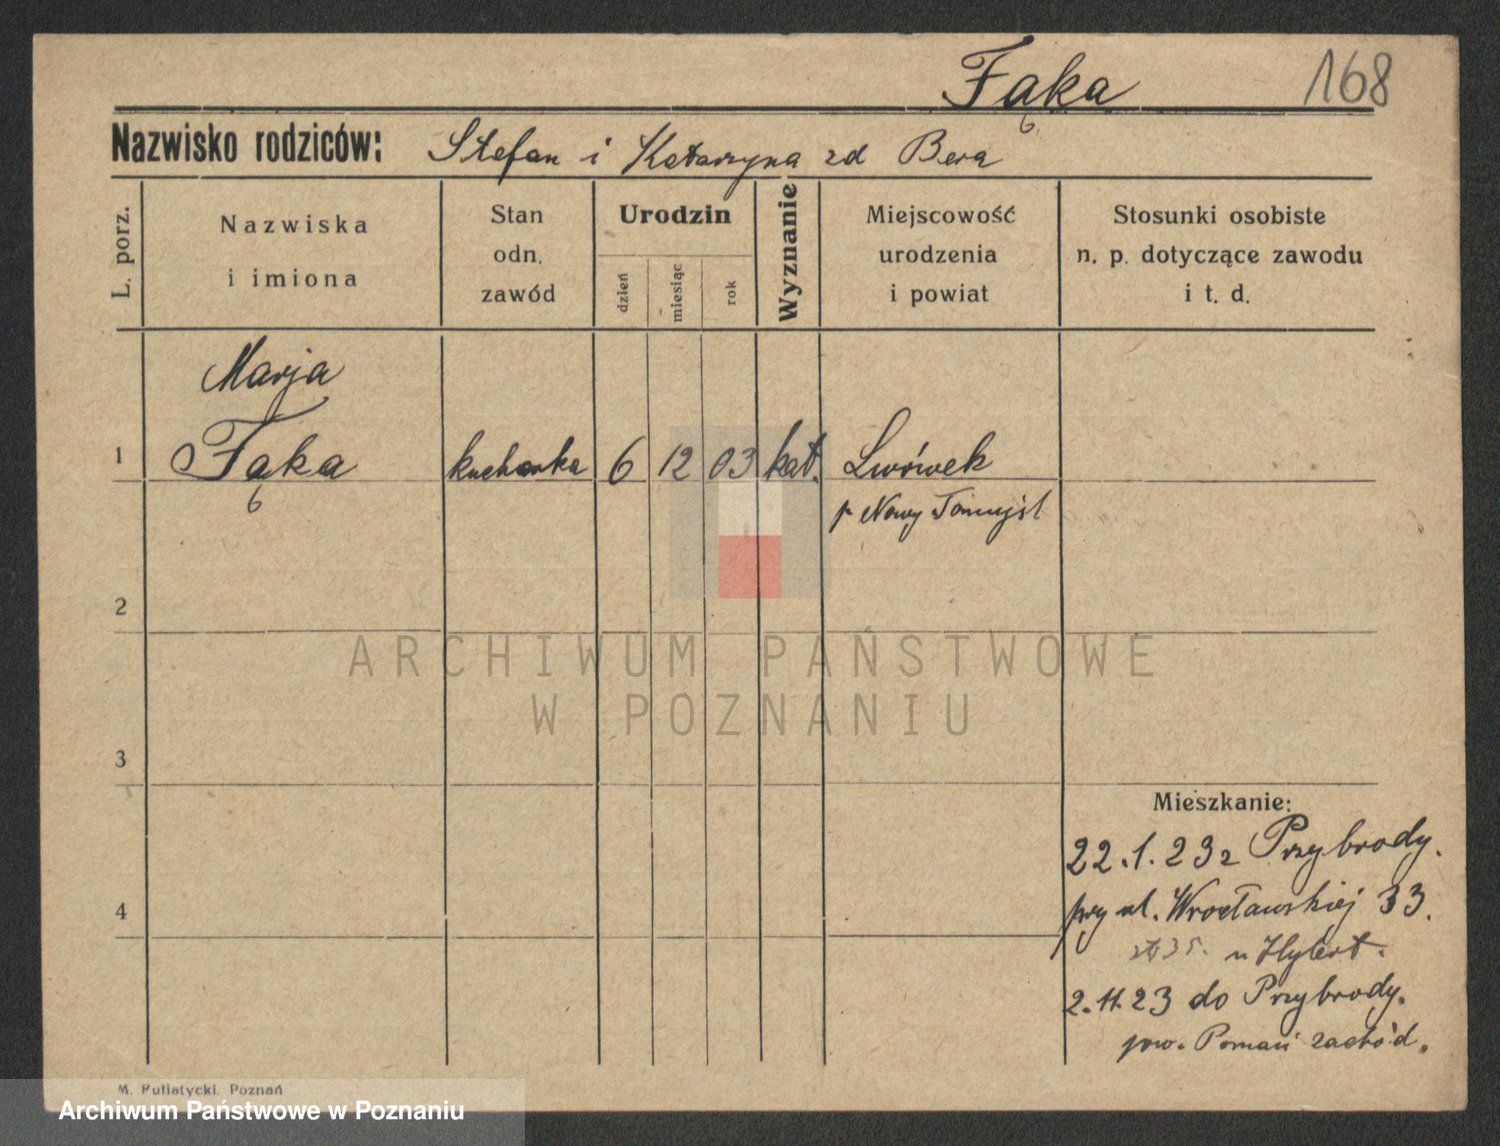 Fąka 168
Nazwisko rodziców: Stefan i Katarzyna zd Bera
L. porz.
Nazwiska
i imiona
Stan
odn.
zawód
Urodzin
dzień
miesiąc
rok
Wyznanie
Miejscowość
urodzenia
i powiat
Stosunki osobiste
n. p. dotyczące zawodu
i t. d.
Marja
1 Fąka kucharka 6 12 03 kat. Lwówek
p Nowy Tomyśl
2
ARCHIWUM PAŃSTWOWE
W POZNANIU
3
Mieszkanie:
22.1.23 z Przybrody.
przy ul. Wrocławskiej 33.
35. u
4
2.11.23 do Przybrody.
pow. Poznań zachód.
M. Putiatycki. Poznań
Archiwum Państwowe w Poznaniu